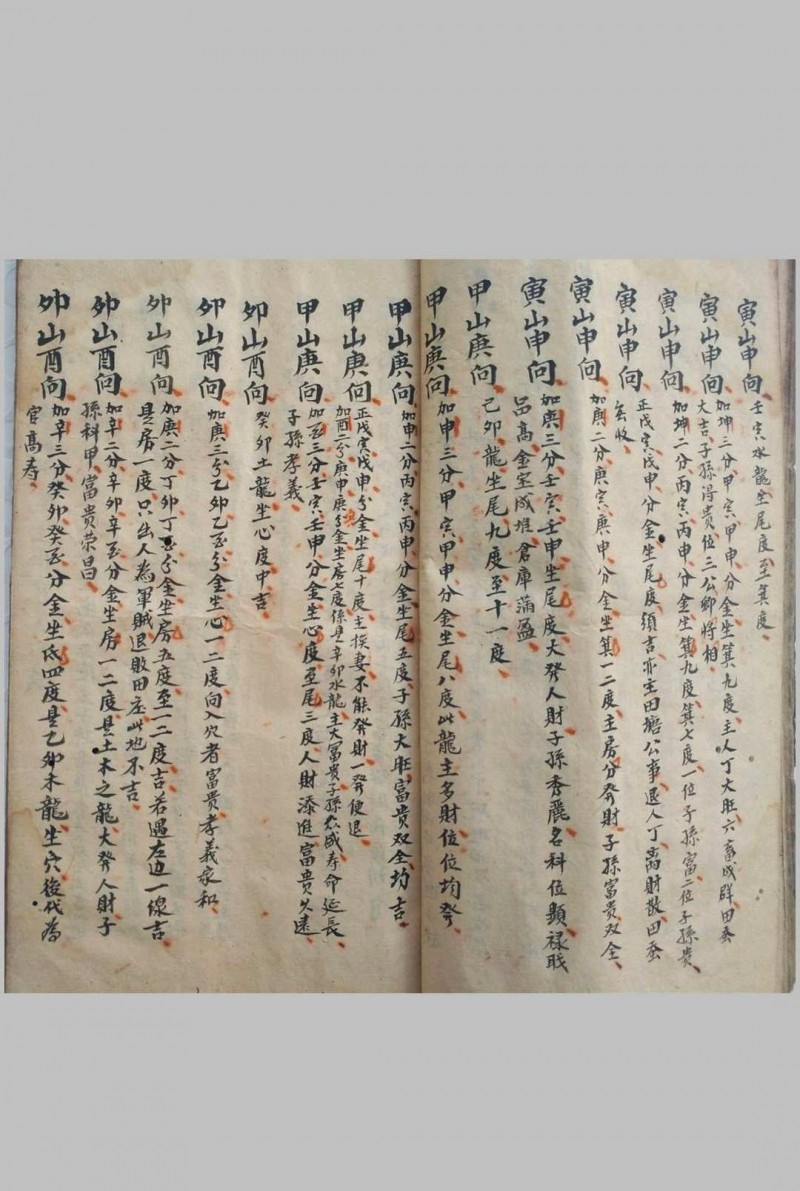 寅山申向、壬寅水龍坐尾度至箕度、
寅山申向、加坤三分甲寅甲申分金坐箕九度、主人丁大旺六畜成群田蚕
大吉、子孫得貴位三公卿將相、
寅山申向、加坤二分丙寅丙申分金坐箕九度箕七度、一位子孫富二位子孫貴、
寅山申向、正戊寅戊申分金坐尾度須吉亦主田塘公事退人丁离財散田蚕
全收、
寅山申向、加庚二分庚寅庚申分金坐箕一二度主房分發財子孫富貴双全、
寅山申向、加庚三分壬寅壬申坐尾度大發人財子孫秀麗名科位顯祿戝
品高金宝成堆倉庫蒲盈、
甲山庚向、己卯龍坐尾九度至十一度、
甲山庚向、加申三分甲寅甲申分金坐尾八度此龍主多財位位均發、
甲山庚向、加申二分丙寅丙申分金坐尾五度子孫大旺富貴双全均吉、
甲山庚向、正戊寅戊申分金坐尾十度主損妻不能發財一發便退、
加酉二分庚申庚分金坐房七度係是辛卯水龍主大富貴子孫昌盛寿命延長、
甲山庚向、加至三分壬寅壬申分金坐心度至尾三度人財添進富貴久遠、
子孫孝義、
卯山酉向、癸卯土龍坐心度中吉、
卯山酉向、加庚三分乙卯乙至分金坐心一二度向入穴者富貴孝義家和、
卯山酉向、加庚二分丁卯丁至分金坐房五度至一二度吉若遇左边一線吉
是房一度只出人為軍賊退敗田庄此地不吉、
卯山酉向、加辛二分辛卯辛亥分金坐房一二度是土木之龍大發人財子
孫科甲富貴荣昌、
卯山酉向、加辛三分癸卯癸亥分金坐氐四度是乙卯木龍坐穴後代為
官高寿、